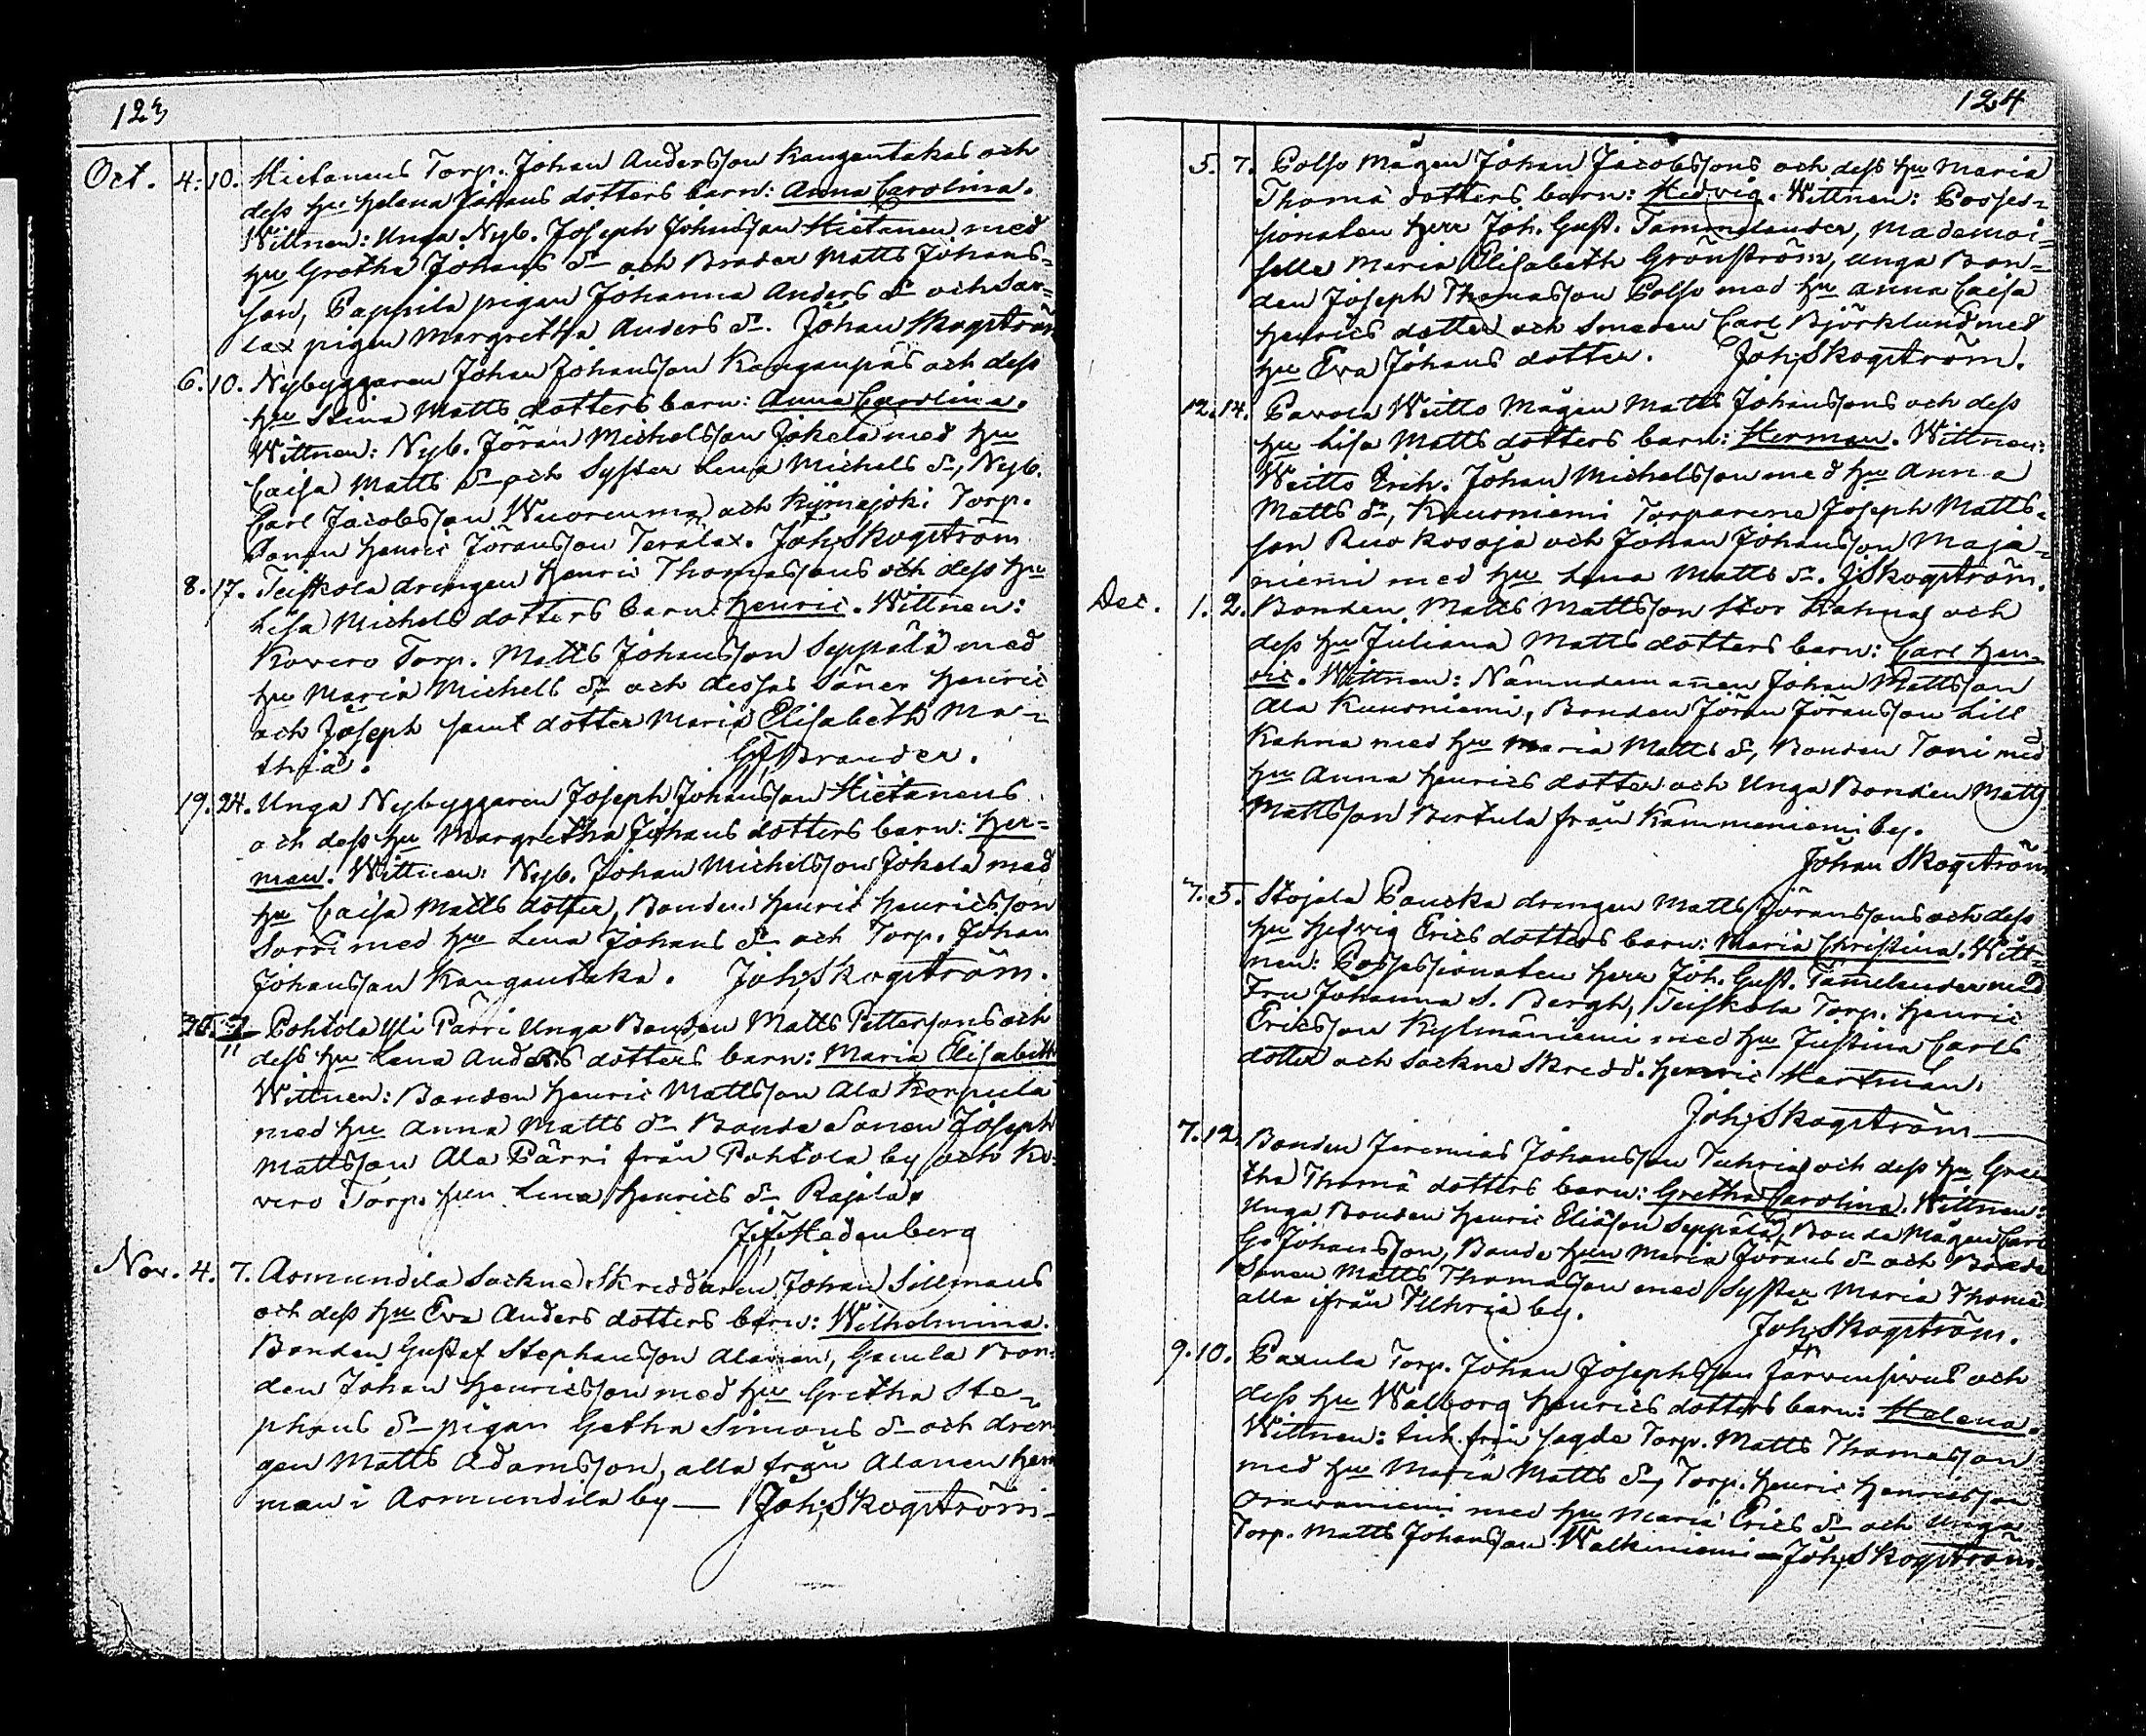 123
Oct. 4. 10. Hietanens Torp. Johan Andersson Kangentakas och
dess hu Helena Johans dotters barn: Anna Carolina.
Wittnen: Unga Nyb. Joseph Johansson Hietanen med
hu Gretha Johans dr och Broder Matts Johans-
son, Pappila pigan Johanna Anders dr och Sar-
lax pigan Margretha Anders dr. Johan Skogström
6. 10. Nybyggaren Johan Johansson Kanganpäs och dess
hu Stina Matts dotters barn: Anna Carolina.
Wittnen: Nyb. Jöran Michelsson Jokela med hu
Caisa Matts dr och Syster Lena Michels dr, Nyb.
Carl Jacobsson Wuorenma och Kijmajoki Torp.
Sonen Henric Jöransson Terälax. Joh. Skogström
8. 17. Teiskola drengen Henric Thomassons och dess hu
Lisa Michels dotters barn: Henric. Wittnen:
Kovero Torp. Matts Johansson Seppälä med
hu Maria Michels dr och dessas Söner Henric
och Joseph samt dotter Maria Elisabeth Ma-
thiä. G. F. Brander.
19. 24. Unga Nybyggaren Joseph Johansson Hietanens
och dess hu Margretha Johans dotters barn: Her-
man. Wittnen: Nyb. Johan Michelsson Jokela med
hu Caisa Matts dotter, Bonden Henric Henricsson
Sorri med hu Lena Johans dr och Torp. Johan
Johansson Kangentaka. Joh. Skogström.
30. 7/11 Pohtola Yli Pärri Unga Bonden Matts Petterssons och
dess hu Lena Anders dotters barn: Maria Elisabeth
Wittnen: Bonden Henric Mattsson Ala Korpula
med hu Anna Matts dr Bonde Sonen Joseph
Mattsson Ala Pärri från Pohtola by och Ko-
vero Torp. hun Lena Henrics dr Rajala.
J. F. Hedenberg
Nov. 4. 7. Asmundila Sockne Skreddaren Johan Sillmans
och dess hu Eva Anders dotters barn: Wilhelmina.
Bonden Gustaf Stephansson Alanen, Gamla Bon-
den Johan Henricsson med hu Gretha Ste-
phans dr pigan Getha Simons dr och dren
gen Matts Adamsson, alla från Alanen hem
man i Asmundila by — Joh. Skogström
124
5. 7. Polso Mågen Johan Jacobssons och dess hu Maria
Thomä dotters barn: Hedvig. Wittnen: Posses-
sionaten Herr Joh. Gust. Tammelander, Mademoi-
selle Maria Elisabeth Grönström, unga Bon-
den Joseph Thomasson Polso med hu Anna Caisa
Henrics dotter och Smeden Carl Björklund med
hu Eva Johans dotter. Joh. Skogström.
12. 14. Pavola Weitto Mågen Matts Johanssons och dess
hu Lisa Matts dotters barn: Herman. Wittnen:
Weitto Erich. Johan Michelsson med hu Anna
Matts dr, Kuusniemi Torparene Joseph Matts-
son Ruokosoja och Johan Johansson Maja-
niemi med hu Lena Matts dr. J Skogström.
Dec. 1. 2. Bonden Matts Mattsson Stor Kahna och
dess hu Juliana Matts dotters barn: Carl Hen-
ric. Wittnen: Nämndemannen Johan Mattsson
Ala Kuusniemi, Bonden Jöran Jöransson Lill
Kahna med hu Maria Matts dr, Bonden Toni med
hu Anna Henrics dotter och Unga Bonden Matts
Mattsson Bertula från Kämmeniemi by.
Johan Skogström
7. 5. Stojala Pauska drengen Matts Jöranssons och dess
hu Hedvig Erics dotters barn: Maria Christina. Witt-
nen: Possessionaten Herr Joh. Gust. Tamelander med
Fru Johanna S. Bergh, Teiskola Torp. Henric
Ericsson Kylmäniemi med hu Justina Carls
dotter och Sockne Skredd. Henric Hertman.
Joh. Skogström
7. 12. Bonden Jeremias Johansson Tuhria och dess hu Gre-
tha Thomä dotters barn: Gretha Carolina. Wittnen:
Unga Bonden Henric Eliasson Seppälä, Bonde Mågen Carl
Gs Johansson, Bonde hun Maria Jörans dr och Bonde
Sonen Matts Thomasson med Syster Maria Thomä
alla ifrån Tuhria by.
Joh. Skogström.
9. 10. Paxula Torp. Johan Josephsson Järvensivus och
dess hu Walborg Henrics dotters barn: Helena.
Wittnen: Enk. från sagde Torp. Matts Thomasson
med hu Maria Matts dr, Torp. Henric Henricsson
Orawaniemi med hu Maria Erics dr och Unga
Torp. Matts Johansson Walkiniemi — Joh. Skogström